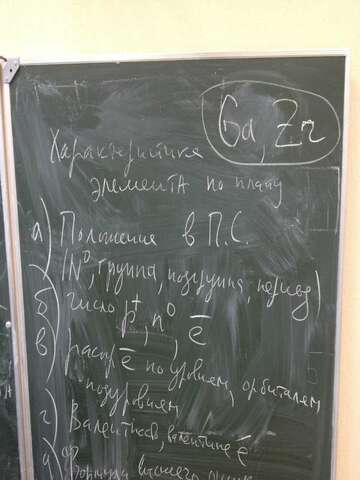 Ga, Zr
Характеристика
элемента по плану
а) Положение в П.С.
(№, группа, подгруппа, период)
б) число p⁺, n⁰, ē
в) распр ē по уровням, орбиталям
подуровням
г) Валентность, валентные ē
д) Формула высшего